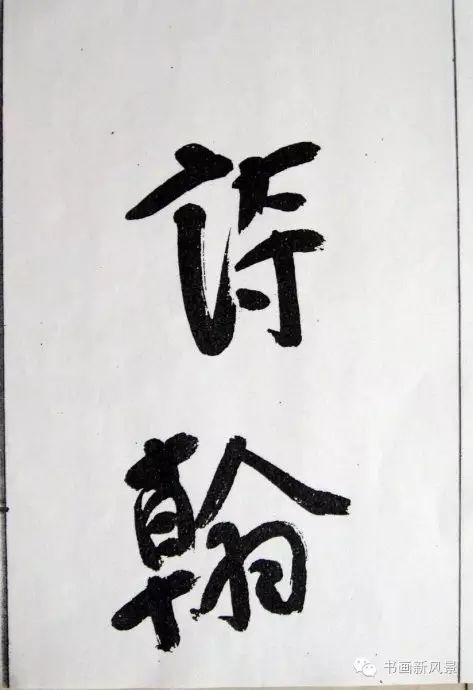 诗
翰
书画新风景